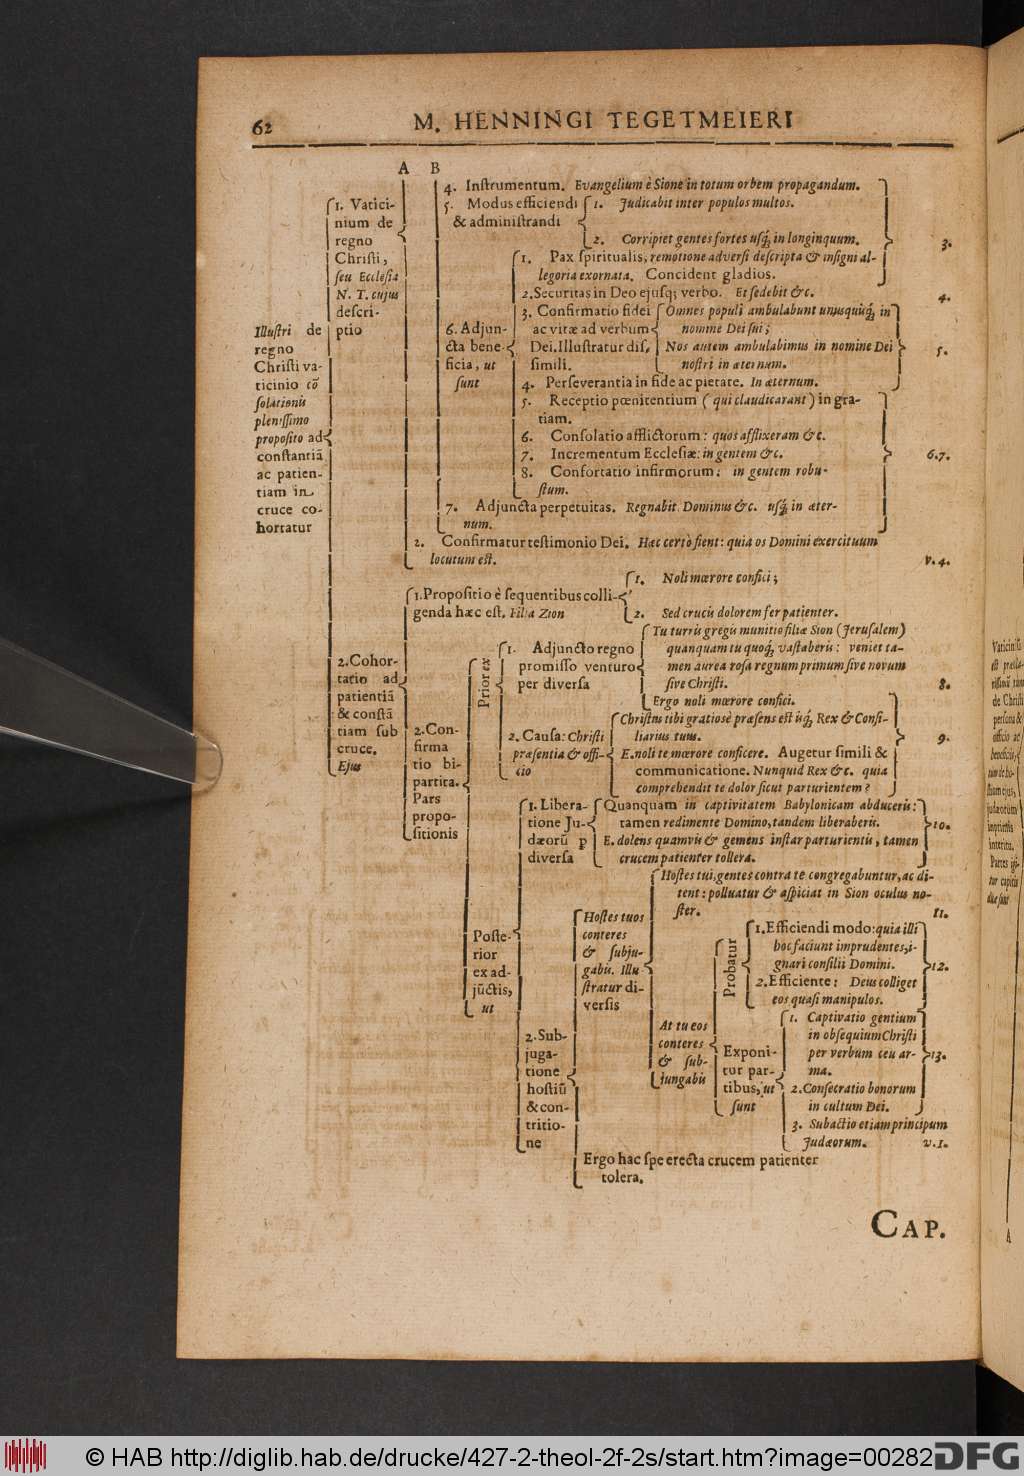 62
M. HENNINGI TEGETMEIERI
A B
Illuſtri de
regno
Chriſti va-
ticinio cō
ſolationis
pleniſſimo
propoſito ad
conſtantiā
ac patien-
tiam in
cruce co-
hortatur
1. Vatici-
nium de
regno
Chriſti,
ſeu Eccleſia
N. T. cujus
deſcri-
ptio
4. Inſtrumentum. Evangelium è Sione in totum orbem propagandum.
5. Modus efficiendi
& adminiſtrandi
1. Judicabit inter populos multos.
2. Corripiet gentes fortes uſq́; in longinquum.
3.
6. Adjun-
cta bene-
ficia, ut
ſunt
1. Pax ſpiritualis, remotione adverſi deſcripta & inſigni al-
legoria exornata. Concident gladios.
2. Securitas in Deo ejuſq; verbo. Et ſedebit &c.
4.
3. Confirmatio fidei
ac vitæ ad verbum
Dei. Illuſtratur diſ-
ſimili.
Omnes populi ambulabunt unuſquiſq́; in
nomine Dei ſui;
Nos autem ambulabimus in nomine Dei
noſtri in æternum.
5.
4. Perſeverantia in fide ac pietate. In æternum.
5. Receptio pœnitentium ( qui claudicarant ) in gra-
tiam.
6. Conſolatio afflictorum: quos afflixeram &c.
7. Incrementum Eccleſiæ: in gentem &c.
8. Confortatio infirmorum: in gentem robu-
ſtum.
6.7.
7. Adjuncta perpetuitas. Regnabit Dominus &c. uſq́; in æter-
num.
2. Confirmatur teſtimonio Dei. Hæc certò fient: quia os Domini exercituum
locutum eſt.
v. 4.
2. Cohor-
tatio ad
patientiā
& conſtā
tiam ſub
cruce.
Ejus
1. Propoſitio è ſequentibus colli-
genda hæc eſt. Filia Zion
1. Noli mœrore confici;
2. Sed crucis dolorem fer patienter.
2. Con-
firma
tio bi-
partita.
Pars
propo-
ſitionis
Prior ex
1. Adjuncto regno
promiſſo venturo
per diverſa
Tu turris gregis munitio filiæ Sion (Jeruſalem)
quanquam tu quoq́; vaſtaberis: veniet ta-
men aurea roſa regnum primum ſive novum
ſive Chriſti.
Ergo noli mœrore confici.
8.
2. Cauſa: Chriſti
præſentia & offi-
cio
Chriſtus tibi gratioſè præſens eſt ũq́; Rex & Conſi-
liarius tuus.
E. noli te mœrore conficere. Augetur ſimili &
communicatione. Nunquid Rex &c. quia
comprehendit te dolor ſicut parturientem?
9.
Poſte-
rior
ex ad-
jūctis,
ut
1. Libera-
tione Ju-
dæorū p
diverſa
Quanquam in captivitatem Babylonicam abduceris:
tamen redimente Domino, tandem liberaberis.
E. dolens quamvis & gemens inſtar parturientis, tamen
crucem patienter tollera.
10.
2. Sub-
juga-
tione
hoſtiū
& con-
tritio-
ne
Hoſtes tuos
conteres
& ſubju-
gabis. Illu-
ſtratur di-
verſis
Hoſtes tui, gentes contra te congregabuntur, ac di-
cent: polluatur & aſpiciat in Sion oculus no-
ſter.
11.
At tu eos
conteres
& ſub-
jungabis
Probatur
1. Efficiendi modo: quia illi
hoc faciunt imprudentes, i-
gnari conſilii Domini.
2. Efficiente: Deus colliget
eos quaſi manipulos.
12.
Exponi-
tur par-
tibus, ut
ſunt
1. Captivatio gentium
in obſequium Chriſti
per verbum ceu ar-
ma.
2. Conſecratio bonorum
in cultum Dei.
13.
3. Subactio etiam principum
Judæorum.
v. 1.
Ergo hac ſpe erecta crucem patienter
tolera.
CAP.
© HAB http://diglib.hab.de/drucke/427-2-theol-2f-2s/start.htm?image=00282
DFG